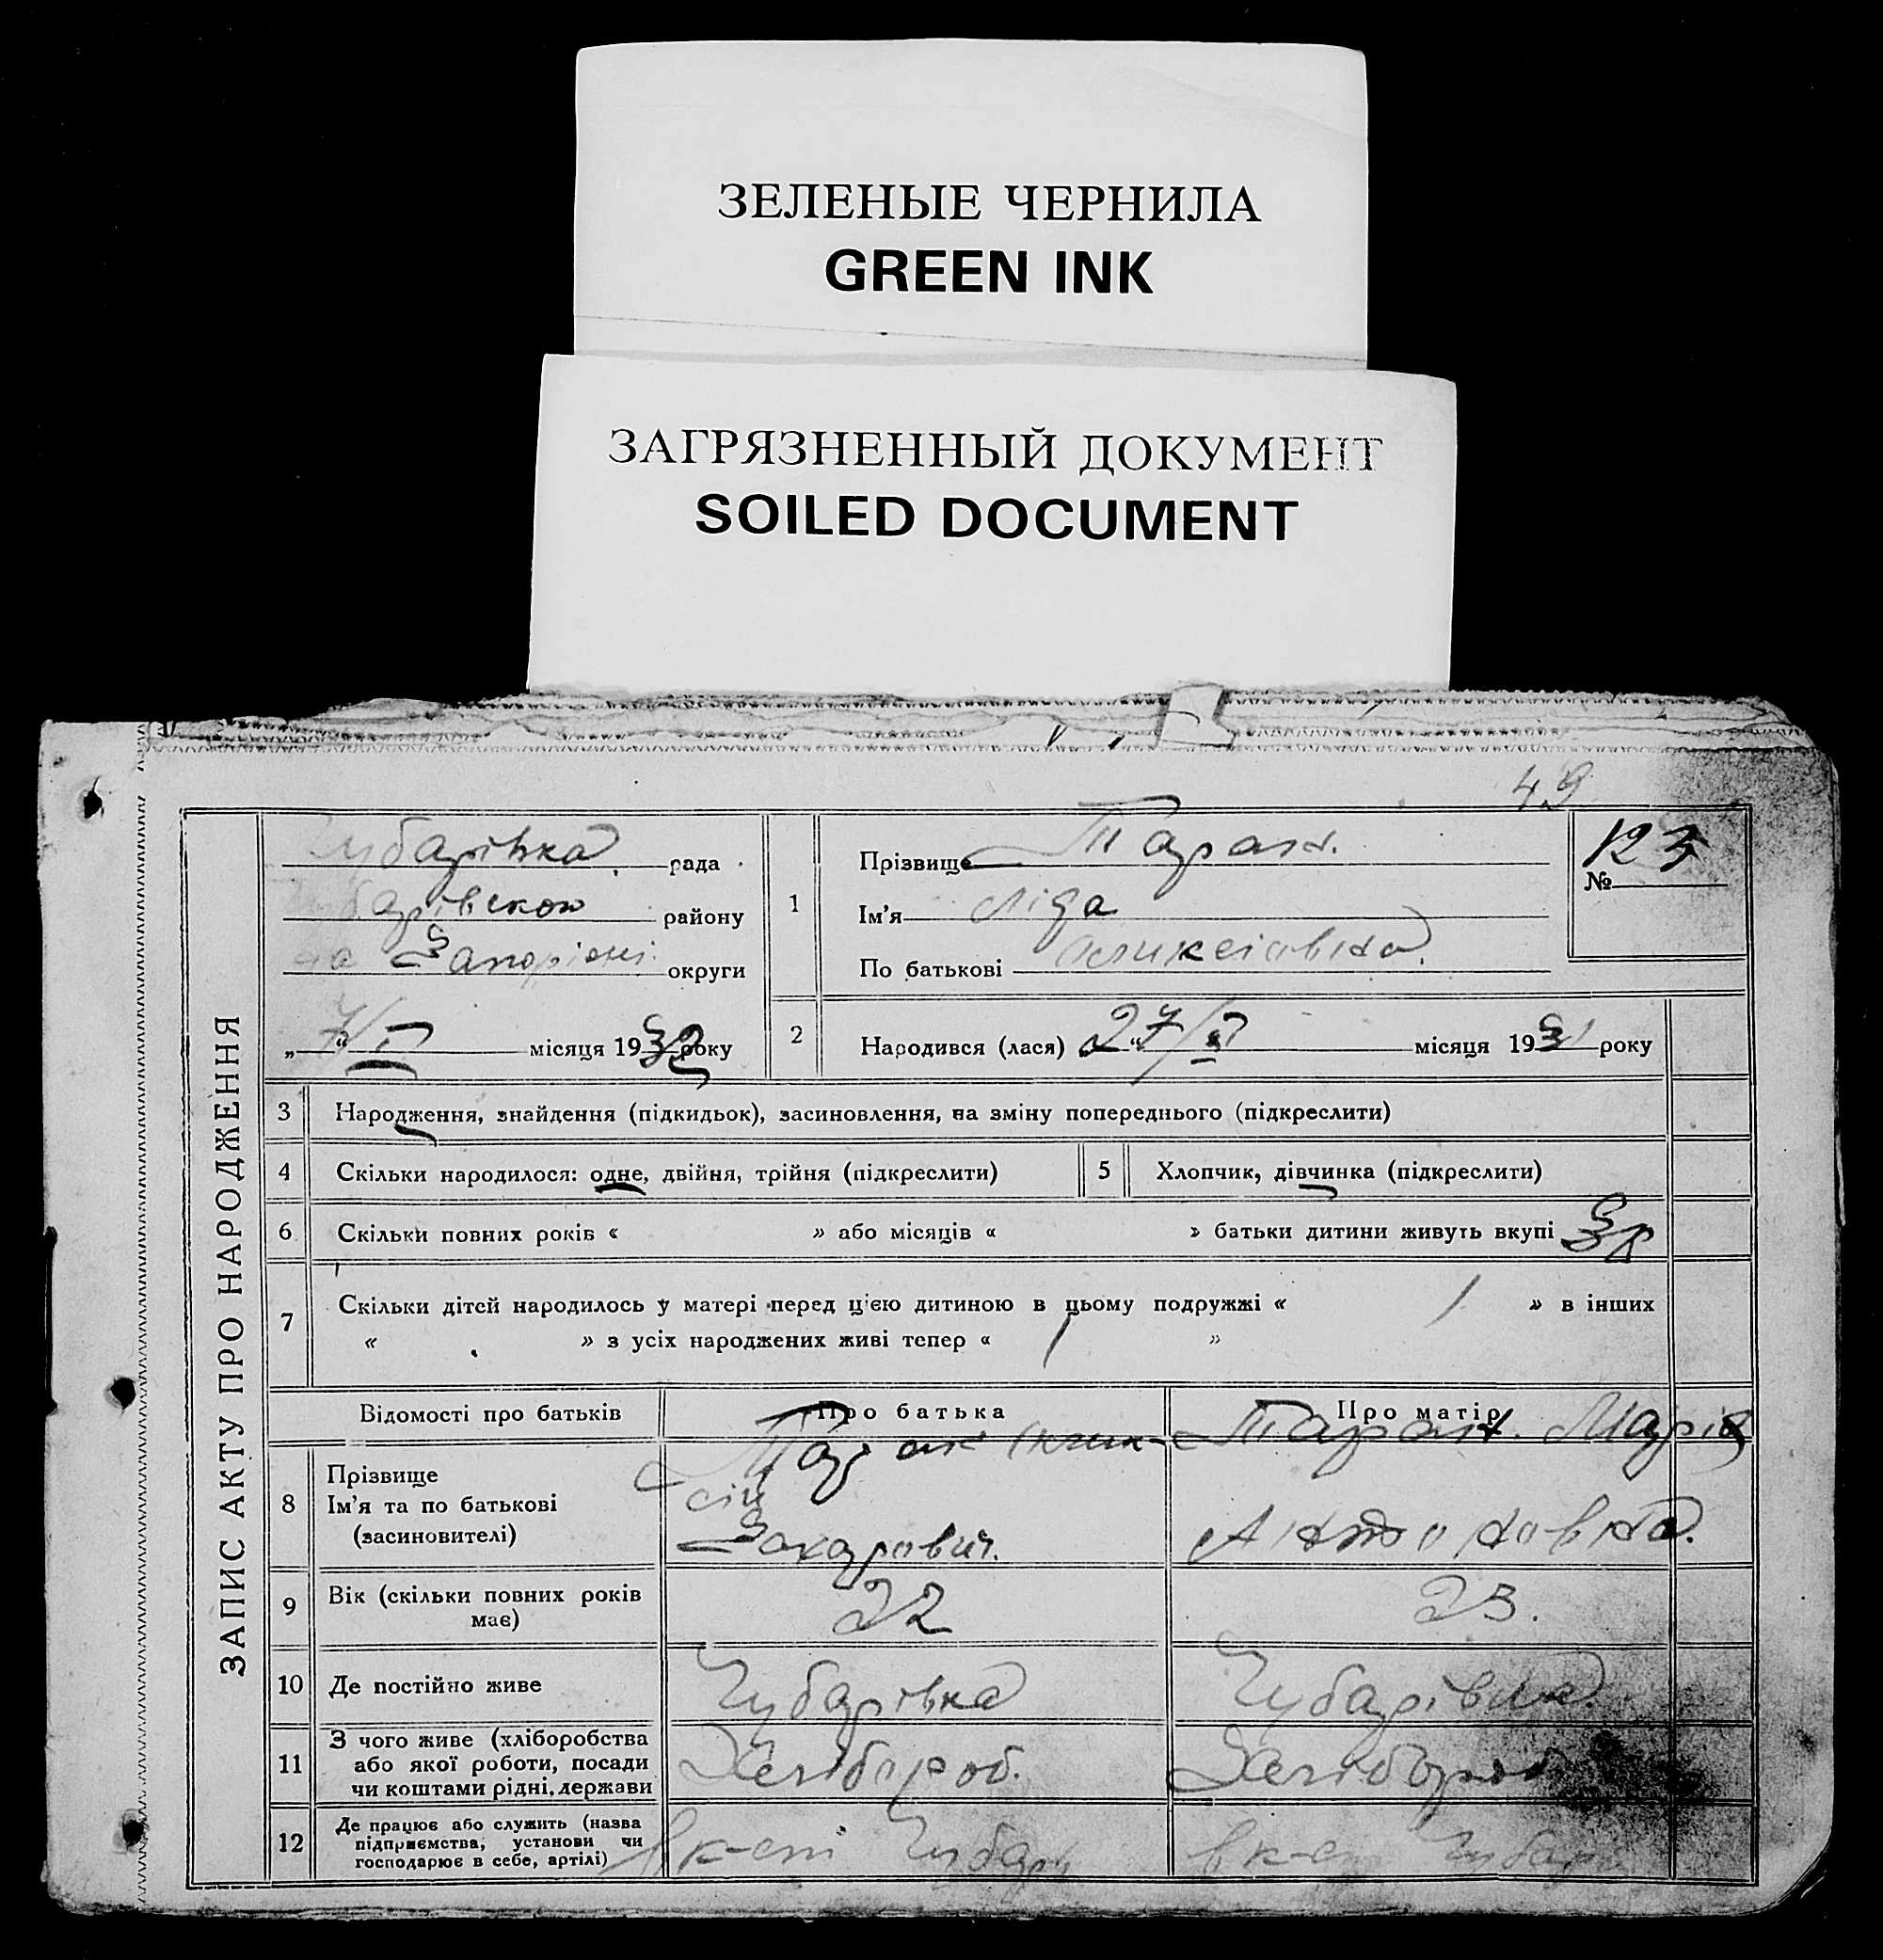 ЗЕЛЕНЫЕ ЧЕРНИЛА
GREEN INK
ЗАГРЯЗНЕННЫЙ ДОКУМЕНТ
SOILED DOCUMENT
49
ЗАПИС АКТУ ПРО НАРОДЖЕННЯ
Чубарівка рада
району
округи
„ 7/I “ місяця 1932 року
1
Прізвище Таран
Ім'я Ліда
По батькові
№ 123
2
Народився (лася) 27/ місяця 1931 року
3 Народження, знайдення (підкидьок), засиновлення, на зміну попереднього (підкреслити)
4 Скільки народилося: одне, двійня, трійня (підкреслити)
5 Хлопчик, дівчинка (підкреслити)
6 Скільки повних років « » або місяців « » батьки дитини живуть вкупі 3р
7 Скільки дітей народилось у матері перед цією дитиною в цьому подружжі « 1 » в інших
« » з усіх народжених живі тепер « 1 »
Відомості про батьків Про батька Про матір
8 Прізвище
Ім'я та по батькові
(засновителі)
Таран
сій
Захарович.
Таран Марія
Антоновна.
9 Вік (скільки повних років
має)
22 23.
10 Де постійно живе Чубарівка Чубарівка
11 З чого живе (хліборобства
або якої роботи, посади
чи коштами рідні, держави
Хлібороб. Хлібороб
12 Де працює або служить (назва
підприємства, установи чи
господарює в себе, артілі)